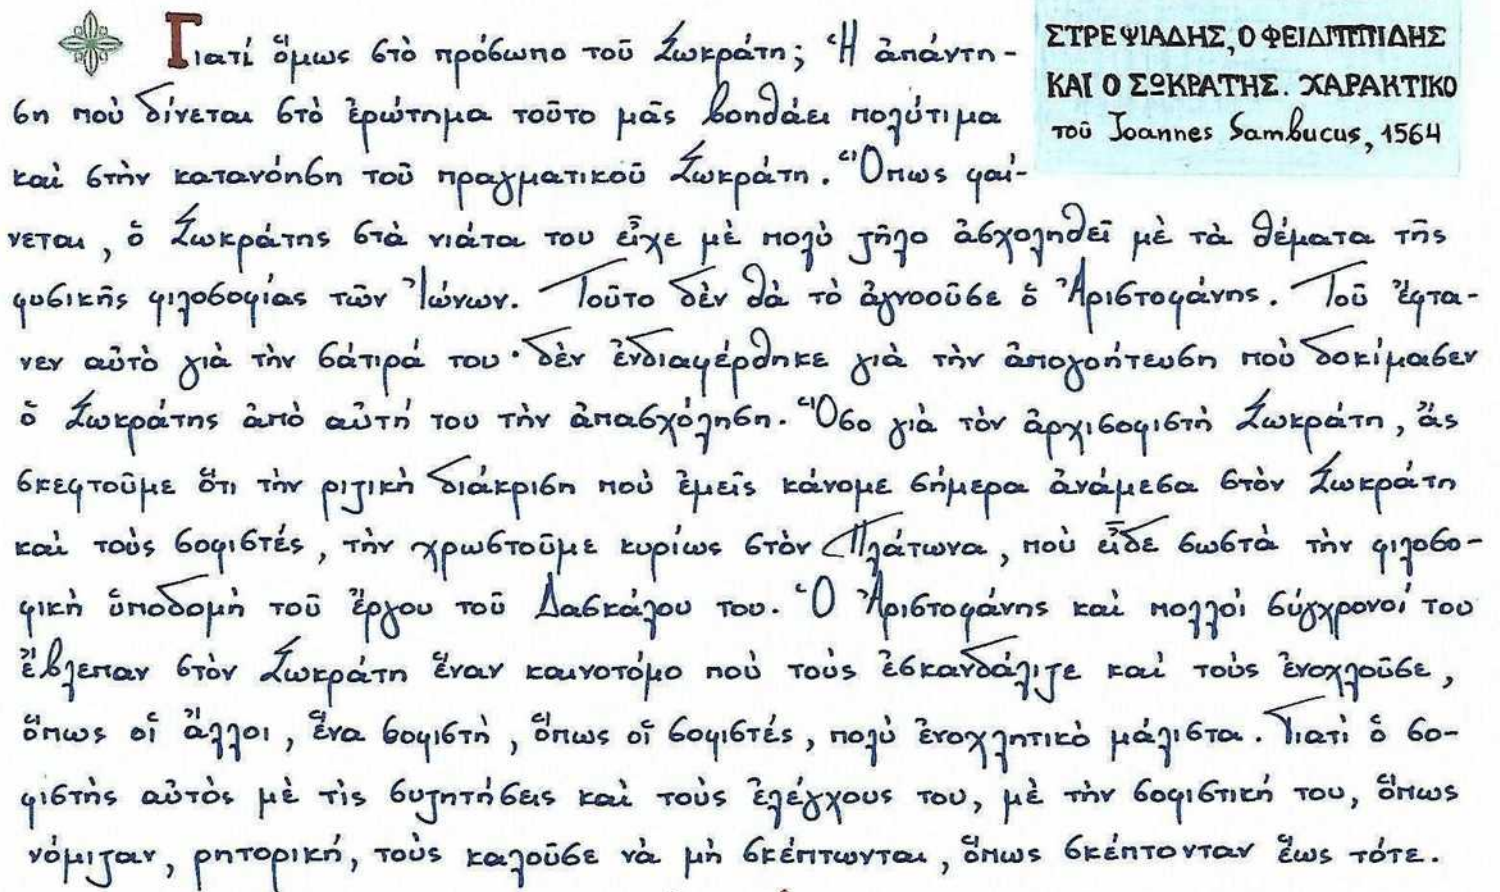 Γιατί ὅμως στὸ πρόσωπο τοῦ Σωκράτη; Ἡ ἀπάντη-
ση ποὺ δίνεται στὸ ἐρώτημα τοῦτο μᾶς βοηθάει πολύτιμα
καὶ στὴν κατανόηση τοῦ πραγματικοῦ Σωκράτη. Ὅπως φαί-
νεται, ὁ Σωκράτης στὰ νιάτα του εἶχε μὲ πολὺ ζῆλο ἀσχοληθεῖ μὲ τὰ θέματα τῆς
φυσικῆς φιλοσοφίας τῶν Ἰώνων. Τοῦτο δὲν θὰ τὸ ἀγνοοῦσε ὁ Ἀριστοφάνης. Τοῦ ἔφτα-
νεν αὐτὸ γιὰ τὴν σάτιρά του· δὲν ἐνδιαφέρθηκε γιὰ τὴν ἀπογοήτευση ποὺ δοκίμασεν
ὁ Σωκράτης ἀπὸ αὐτή του τὴν ἀπασχόληση. Ὅσο γιὰ τὸν ἀρχισοφιστὴ Σωκράτη, ἂς
σκεφτοῦμε ὅτι τὴν ριζικὴ διάκριση ποὺ ἐμεῖς κάνομε σήμερα ἀνάμεσα στὸν Σωκράτη
καὶ τοὺς σοφιστές, τὴν χρωστοῦμε κυρίως στὸν Πλάτωνα, ποὺ εἶδε σωστὰ τὴν φιλοσο-
φικὴ ὑποδομὴ τοῦ ἔργου τοῦ Δασκάλου του. Ὁ Ἀριστοφάνης καὶ πολλοὶ σύγχρονοί του
ἔβλεπαν στὸν Σωκράτη ἕναν καινοτόμο ποὺ τοὺς ἐσκανδάλιζε καὶ τοὺς ἐνοχλοῦσε,
ὅπως οἱ ἄλλοι, ἕνα σοφιστὴ, ὅπως οἱ σοφιστές, πολὺ ἐνοχλητικὸ μάλιστα. Γιατὶ ὁ σο-
φιστὴς αὐτὸς μὲ τὶς συζητήσεις καὶ τοὺς ἐλέγχους του, μὲ τὴν σοφιστική του, ὅπως
νόμιζαν, ρητορική, τοὺς καλοῦσε νὰ μὴ σκέπτωνται, ὅπως σκέπτονταν ἕως τότε.
ΣΤΡΕΨΙΑΔΗΣ, Ο ΦΕΙΔΙΠΠΙΔΗΣ
ΚΑΙ Ο ΣΩΚΡΑΤΗΣ. ΧΑΡΑΚΤΙΚΟ
τοῦ Joannes Sambucus, 1564